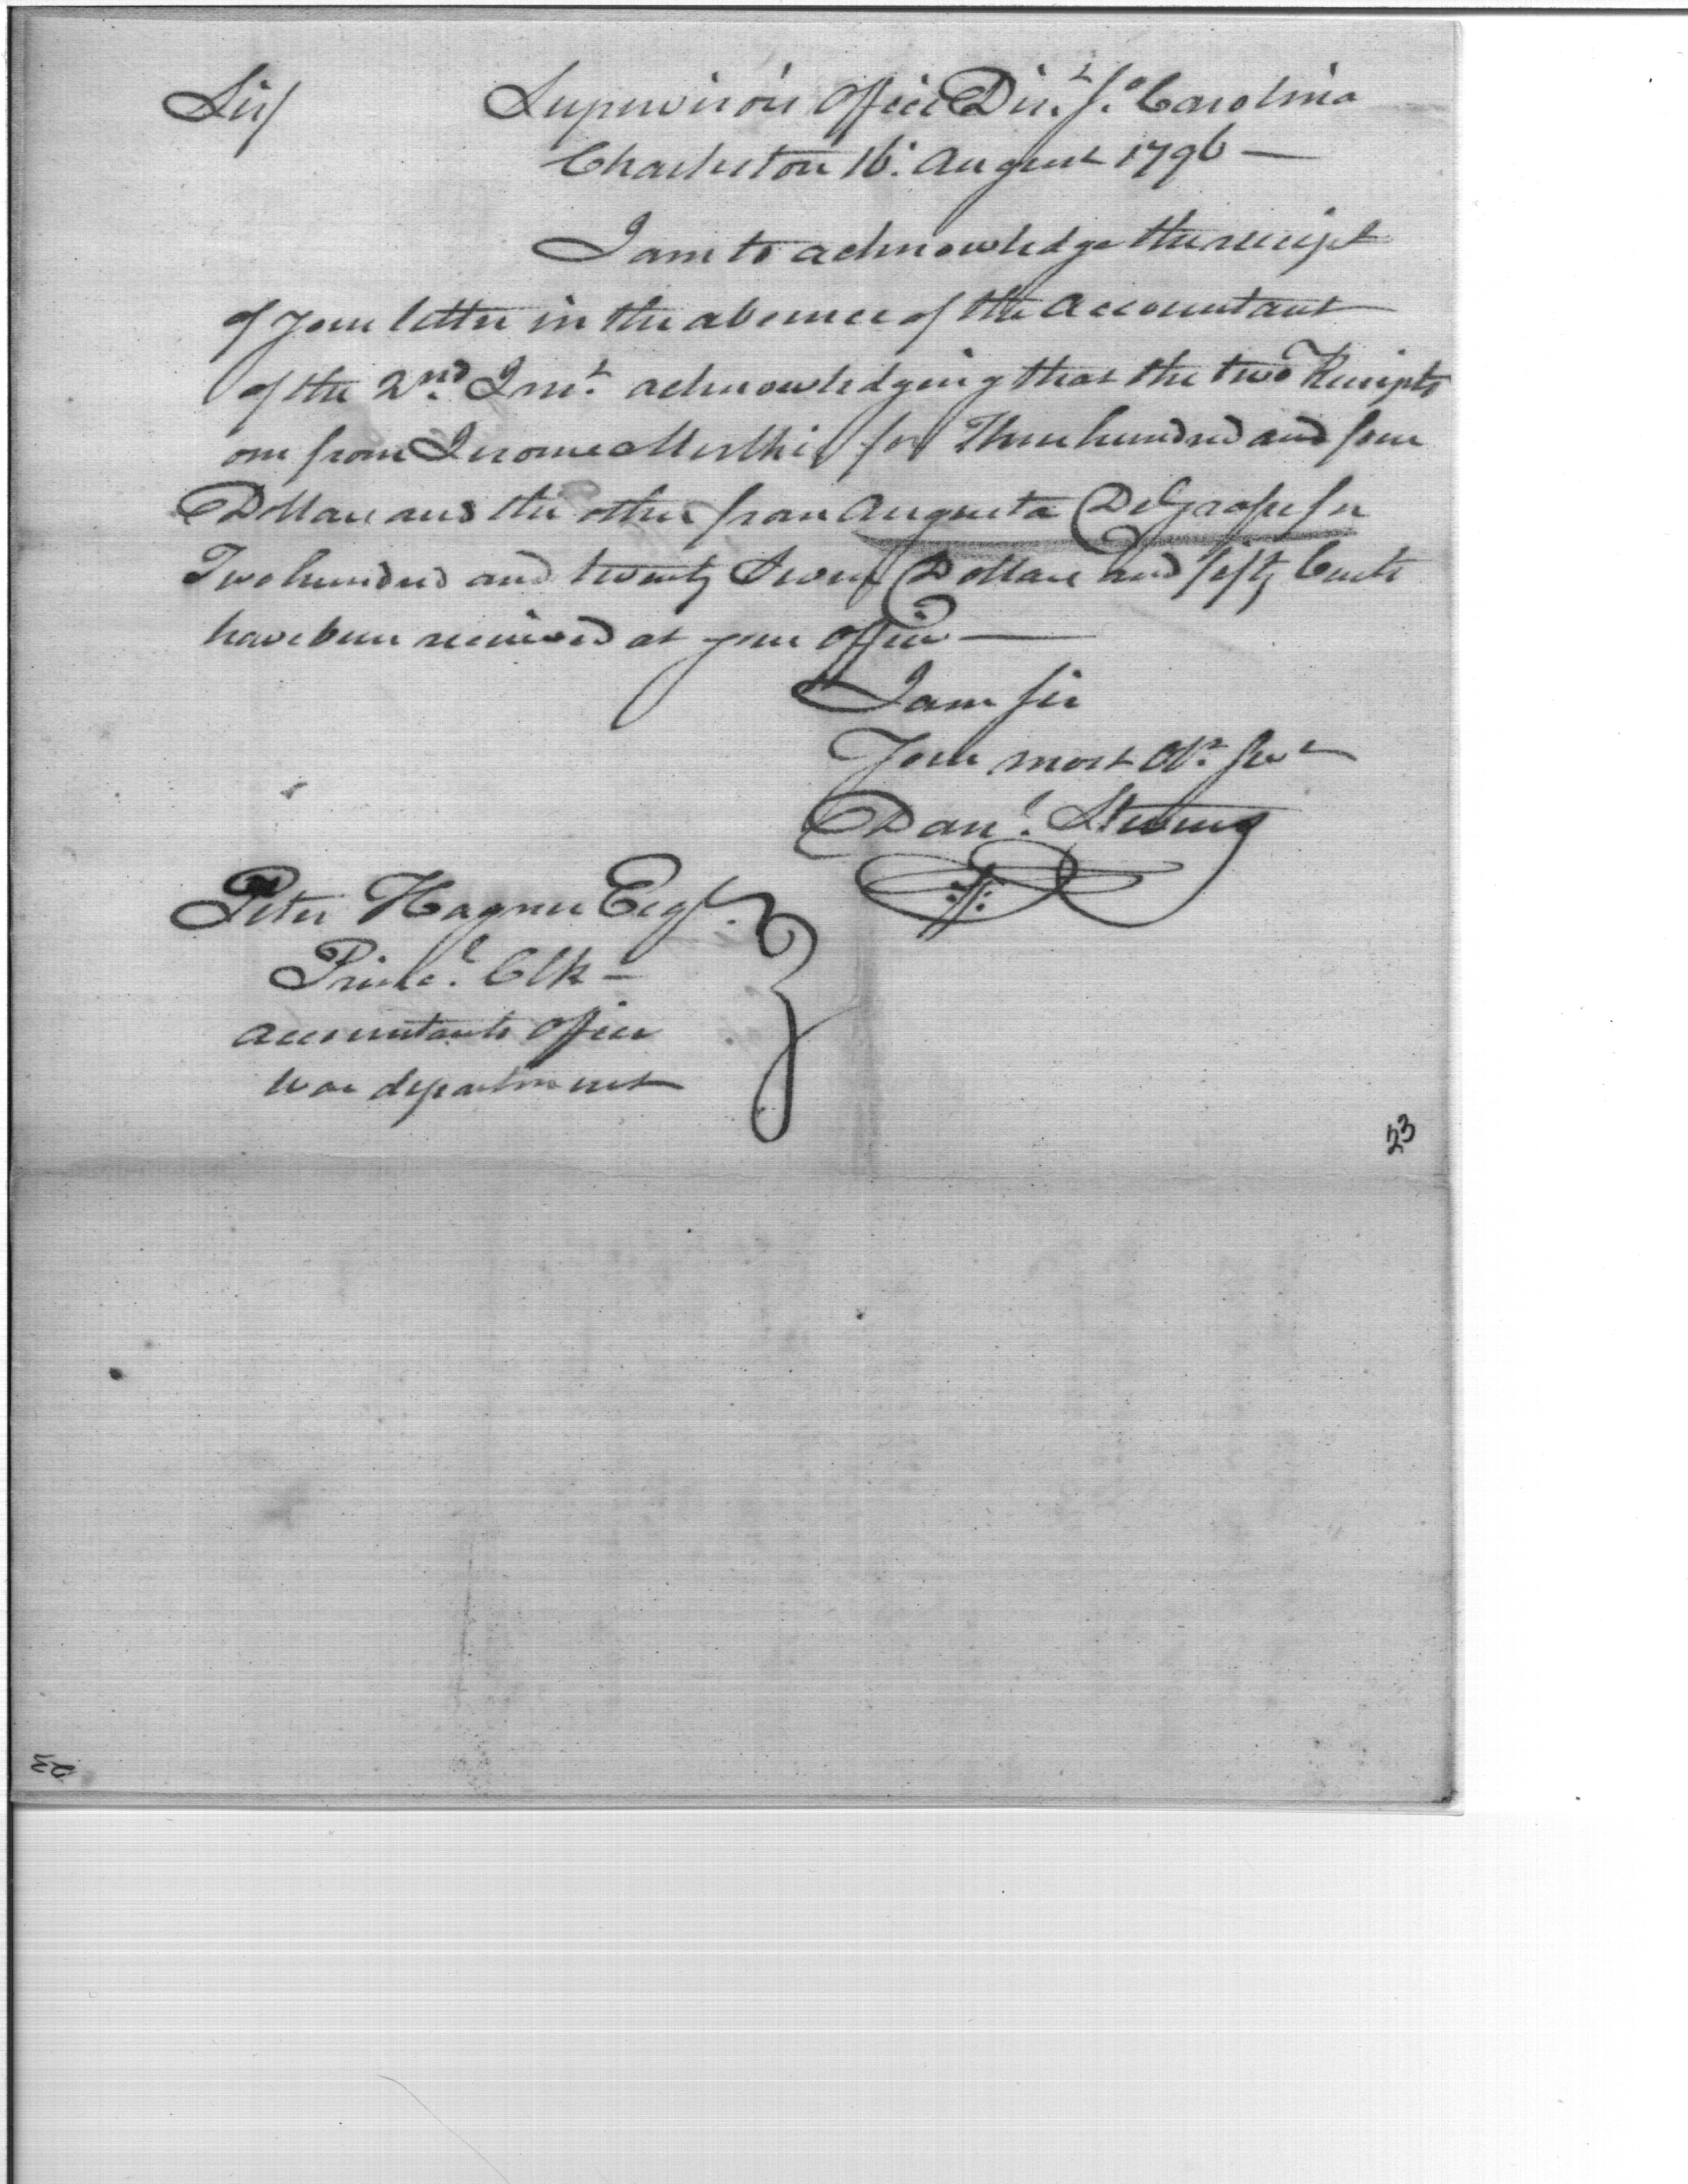 Sir/ Supervisors Office Dist. So. Carolina
Charleston 16. August 1796 —
I am to acknowledge the receipt
of your letter in the absence of the Accountant
of the 2nd Inst. acknowledging that the two Receipts
one from Jerome for Three hundred and four
Dollars and the other from Augusta DeGrasse for
Two hundred and twenty Seven Dollars and fifty Cents
have been received at your Office —
I am Sir
Your most Obt. Sert
Danl. Stevens
Peter Hagner Esqr.
Princl. Clk —
Accountants Office
War department
23
23